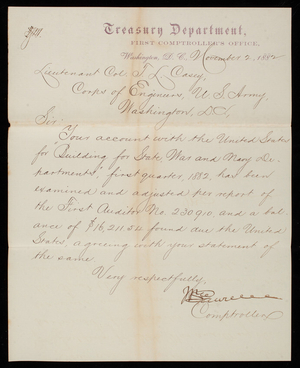 Treasury Department,
FIRST COMPTROLLER'S OFFICE,
Washington, D. C., November 2, 1882
Lieutenant Col. T. L. Casey,
Corps of Engineers, U. S. Army,
Washington, D.C.
Sir:
Your account with the United States
for "Building for State War and Navy De-
partments," first quarter, 1882, has been
examined and adjusted per report of
the First Auditor No. 230910, and a bal-
ance of $16,211.54 found due the United
States agreeing with your statement of
the same.
Very respectfully,
Comptroller